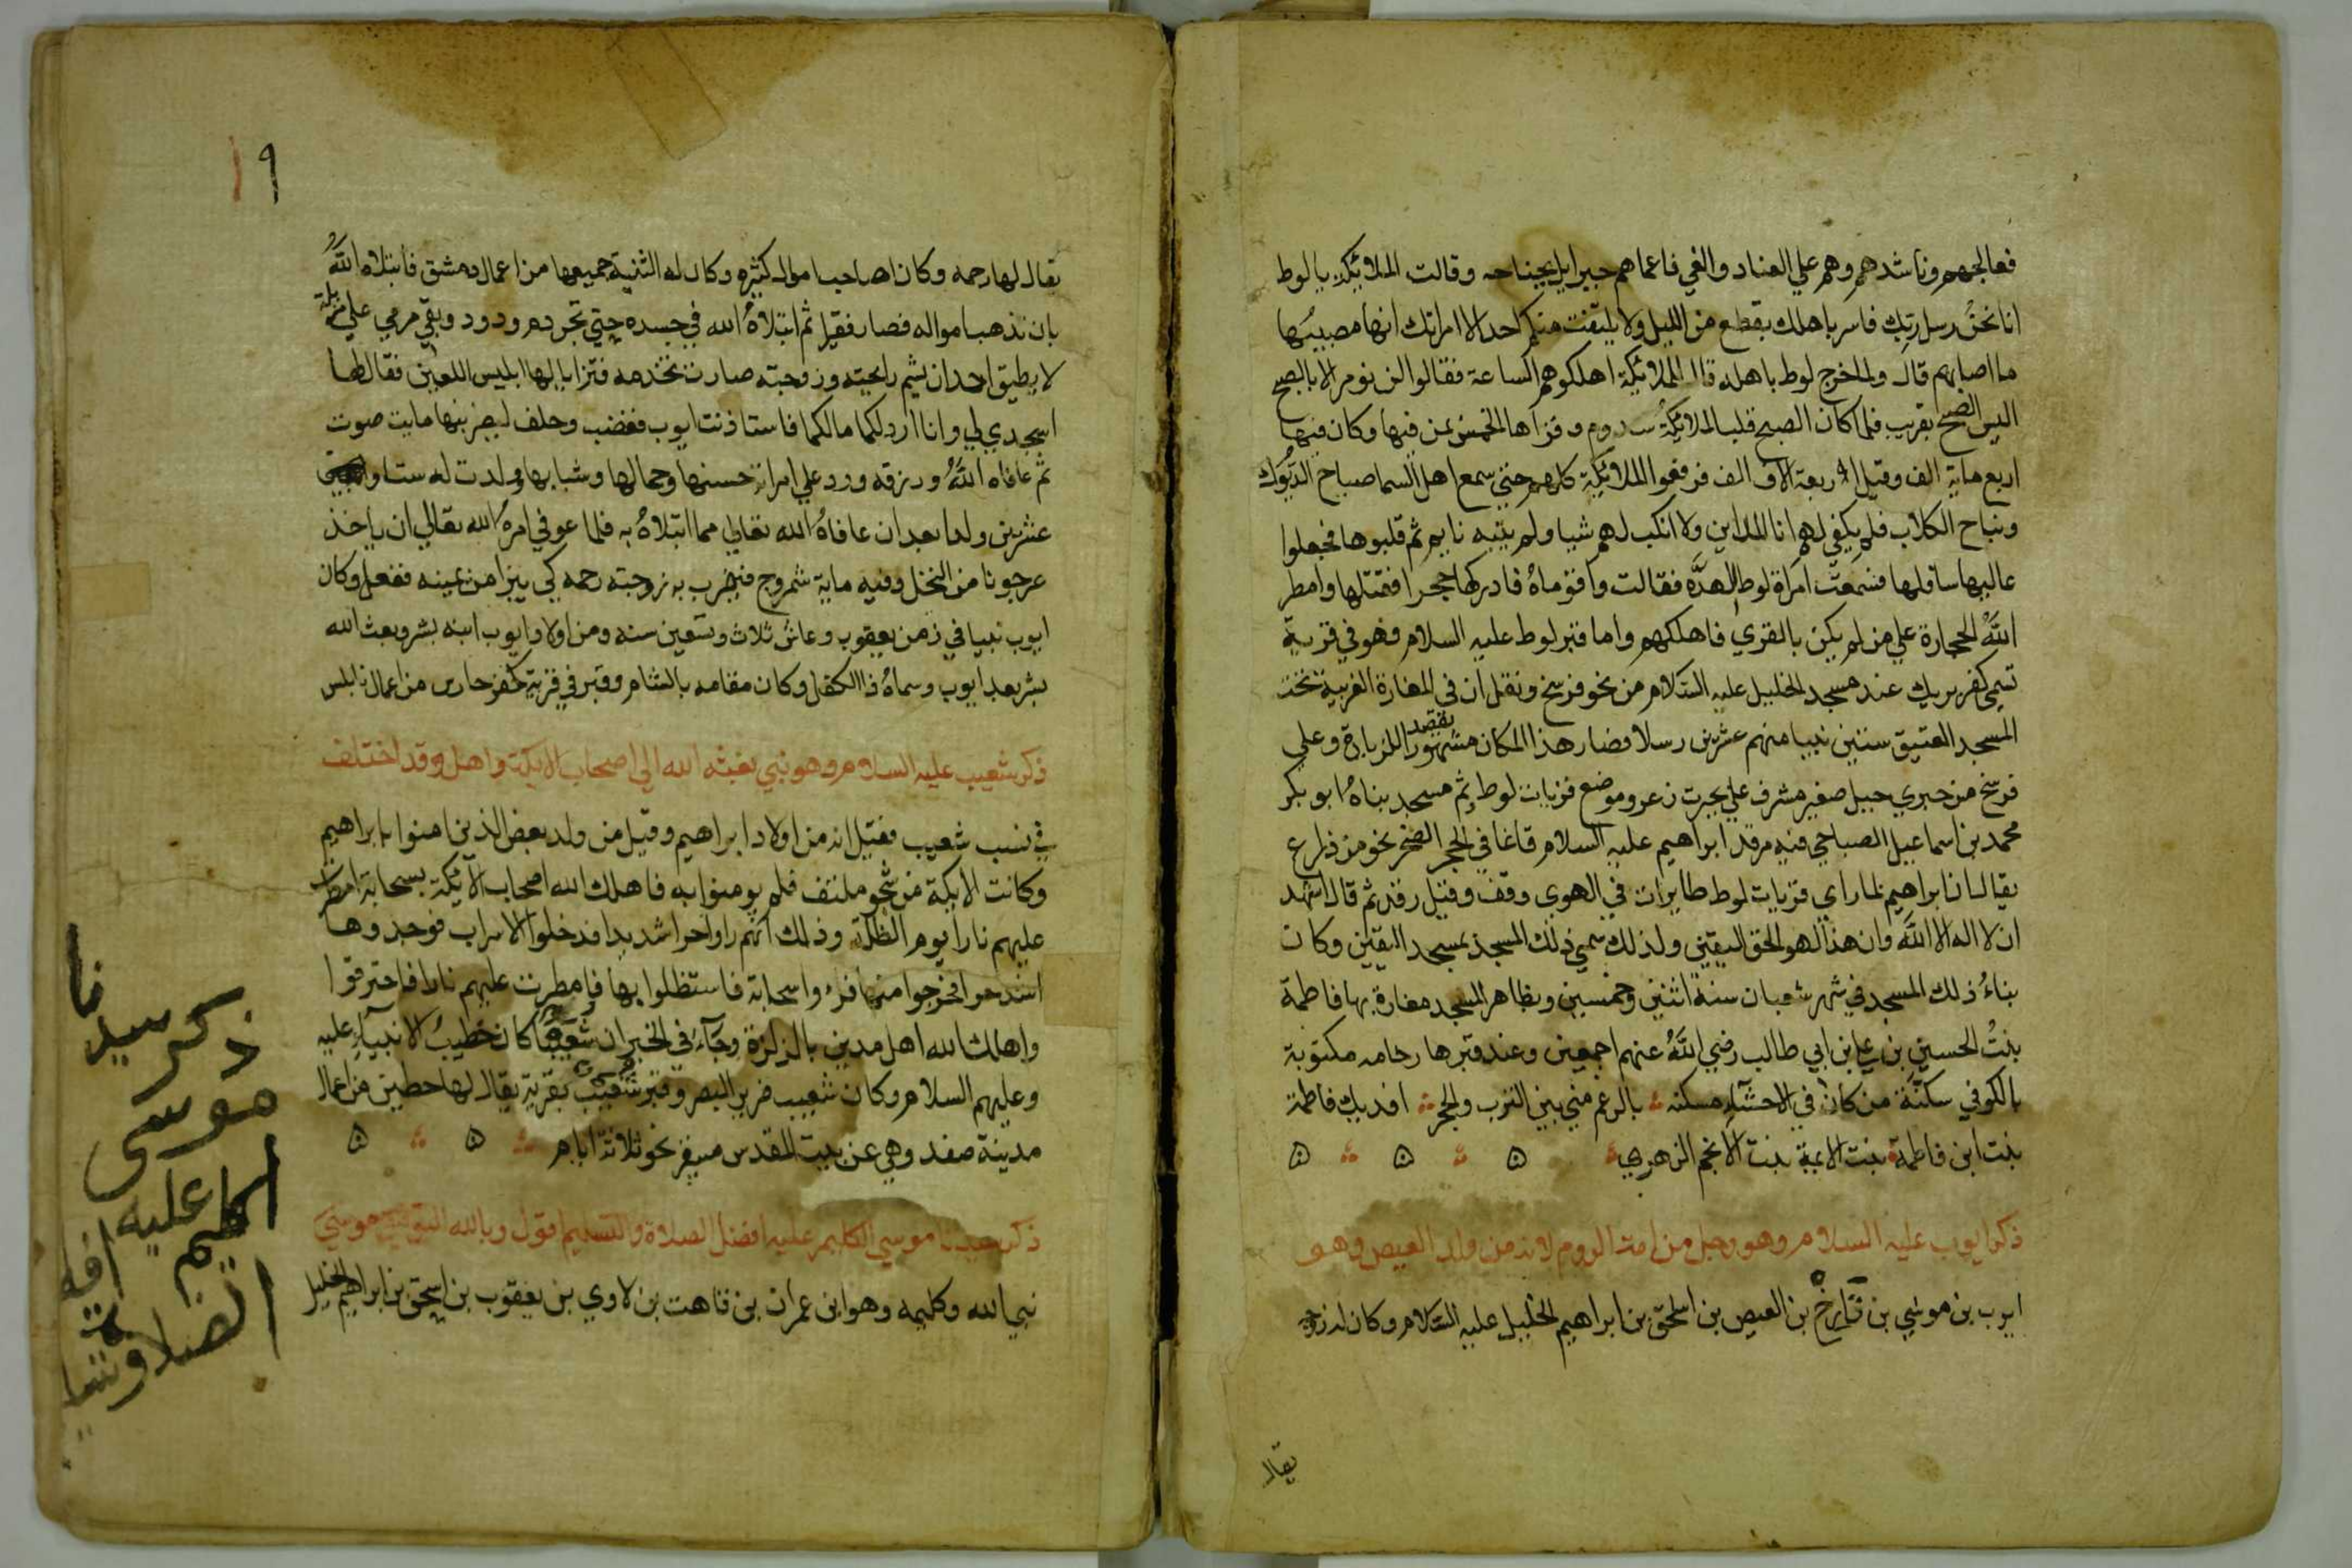 فعالجهم وناشدهم وهم علي العناد والغي فاعماهم جبرايل بجناحه وقالت الملائكة يا لوط
انا نحن رسل ربك فاسر باهلك بقطع من الليل ولا يلتفت منكم احد الا امراتك انها مصيبها
ما اصابهم قال ولما خرج لوط باهله قال للملائكة اهلكوهم الساعة فقالوا لن نومر الا بالصبح
اليس الصبح بقريب فلما كان الصبح قلبت الملائكة سدوم وقراها الخمس بمن فيها وكان فيها
اربع ماية الف وقيل اربعة الاف الف فرفعوا الملائكة كلهم حتي سمع اهل السما صياح الديوك
ونباح الكلاب فلم يكفي لهم انا الملاين ولا انكب لهم شيا ولم ينتبه نايم ثم قلبوها فجعلوا
عاليها سافلها فسمعت امراة لوط الهدة فقالت وا قوماه فادركها حجرا فقتلها وامطر
الله الحجارة علي من لم يكن بالقري فاهلكهم واما قبر لوط عليه السلام فهو في قرية
تسمي كفر بريك عند مسجد الخليل عليه السلام من نحو فرسخ ونقل ان في المغارة الغربية تحت
المسجد العتيق ستين نبيا منهم عشرين رسلا فصار هذا المكان مشهورا يقصد للزيارة وعلي
فرسخ من حبري جبيل صغير مشرف علي بحيرت زعر وموضع قريات لوط ثم مسجد بناه ابو بكر
محمد بن اسماعيل الصباحي فيه مرقد ابراهيم عليه السلام قد غاغا في الحجر الصخر نحو من ذراع
يقال ان ابراهيم لما راي قريات لوط طايرات في الهوي وقف وقيل رقد ثم قال اشهد
ان لا اله الا الله وان هذا لهو الحق اليقين ولذلك سمي ذلك المسجد بمسجد اليقين وكان
بناء ذلك المسجد في شهر شعبان سنة اثنين وخمسين وبظاهر المسجد مغارة بها فاطمة
بنت الحسين بن علي ابن ابي طالب رضي الله عنهم اجمعين وعند قبرها رخامه مكتوبة
بالكوفي سكنة من كان في الاحشاء مسكنه بالرغم مني بين الترب والحجر افديك فاطمة
بنت ابن فاطمة بنت الايمة بنت الانجم الزهري
ذكر ايوب عليه السلام وهو رجل من امة الروم لانه من ولد العيص وهو
ايوب بن موسي بن تارخ بن العيص بن اسحق بن ابراهيم الخليل عليه السلام وكان له زوجة
يقال
١٩
يقال لها رحمه وكان صاحب اموال كثيره وكان له الثنية جميعها من اعمال دمشق فابتلاه الله
بان تذهب امواله فصار فقيرا ثم ابتلاه الله في جسده حتي تجردم ودود وبقي مرمي علي مزبلة
لا يطيق احد ان يشم رايحته وزوجته صارت تخدمه فتزايا لها ابليس اللعين فقال لها
اسجدي لي وانا ارد لكما مالكما فاستاذنت ايوب فغضب وحلف ليضربنها ماية صوت
ثم عافاه الله ورزقه ورد علي امراته حسنها وجمالها وشبابها وولدت له ستا و
عشرين ولدا بعد ان عافاه الله تعالي مما ابتلاه به فلما عوفي امره الله تعالي ان ياخذ
عرجونا من النخل وفيه ماية شمروج فيضرب به زوجته رحمه كي يبرا من يمينه ففعل وكان
ايوب نبيا في زمن يعقوب وعاش ثلاث وتسعين سنه ومن اولاد ايوب ابنه بشر وبعث الله
بشر بعد ايوب وسماه ذا الكفل وكان مقامه بالشام وقبره في قرية كفر حارس من اعمال نابلس
ذكر شعيب عليه السلام وهو نبي بعثه الله الي اصحاب الايكة واهل وقد اختلف
في نسب شعيب فقيل انه من اولاد ابراهيم وقيل من ولد بعض الذين امنوا بابراهيم
وكانت الايكة من شجر ملتف فلم يومنوا به فاهلك الله اصحاب الايكة بسحابة امطرت
عليهم نارا يوم الظلة وذلك انهم راوا حرا شديدا فدخلوا الاسراب فوجدوها
اشد حرا فخرجوا منها فراوا سحابة فاستظلوا بها فامطرت عليهم نارا فاحترقوا
واهلك الله اهل مدين بالزلزلة وجآء في الخبر ان شعيبا كان خطيب الانبيآء عليه
وعليهم السلام وكان شعيب ضرير البصر وقبر شعيب بقرية يقال لها حطين من اعمال
مدينة صفد وهي عن بيت المقدس مسفر نحو ثلاثة ايام
ذكر سيدنا موسي الكليم عليه افضل الصلاة والتسليم اقول وبالله التوفيق موسي
نبي الله وكليمه وهو ابن عمران بن قاهت بن لاوي بن يعقوب بن اسحق بن ابراهيم الخليل
ذكر سيدنا
موسى
الكليم عليه
الصلاة